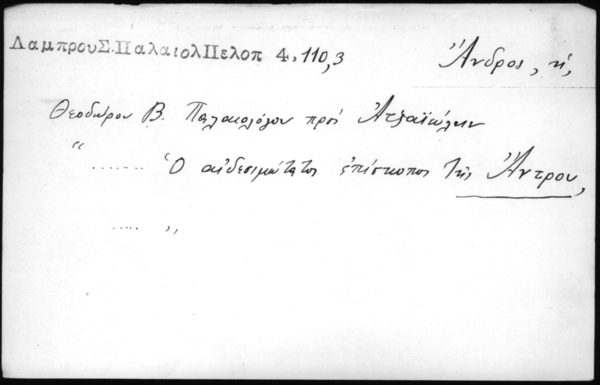 ΛαμπρουΣ.ΠαλαιολΠελοπ 4,110,3
Ἄνδρος, ἡ,
Θεοδώρου Β. Παλαιολόγου πρὸς
“ ....... Ὁ αἰδεσιμώτατος ἐπίσκοπος τῆς Ἄντρου,
..... ,,